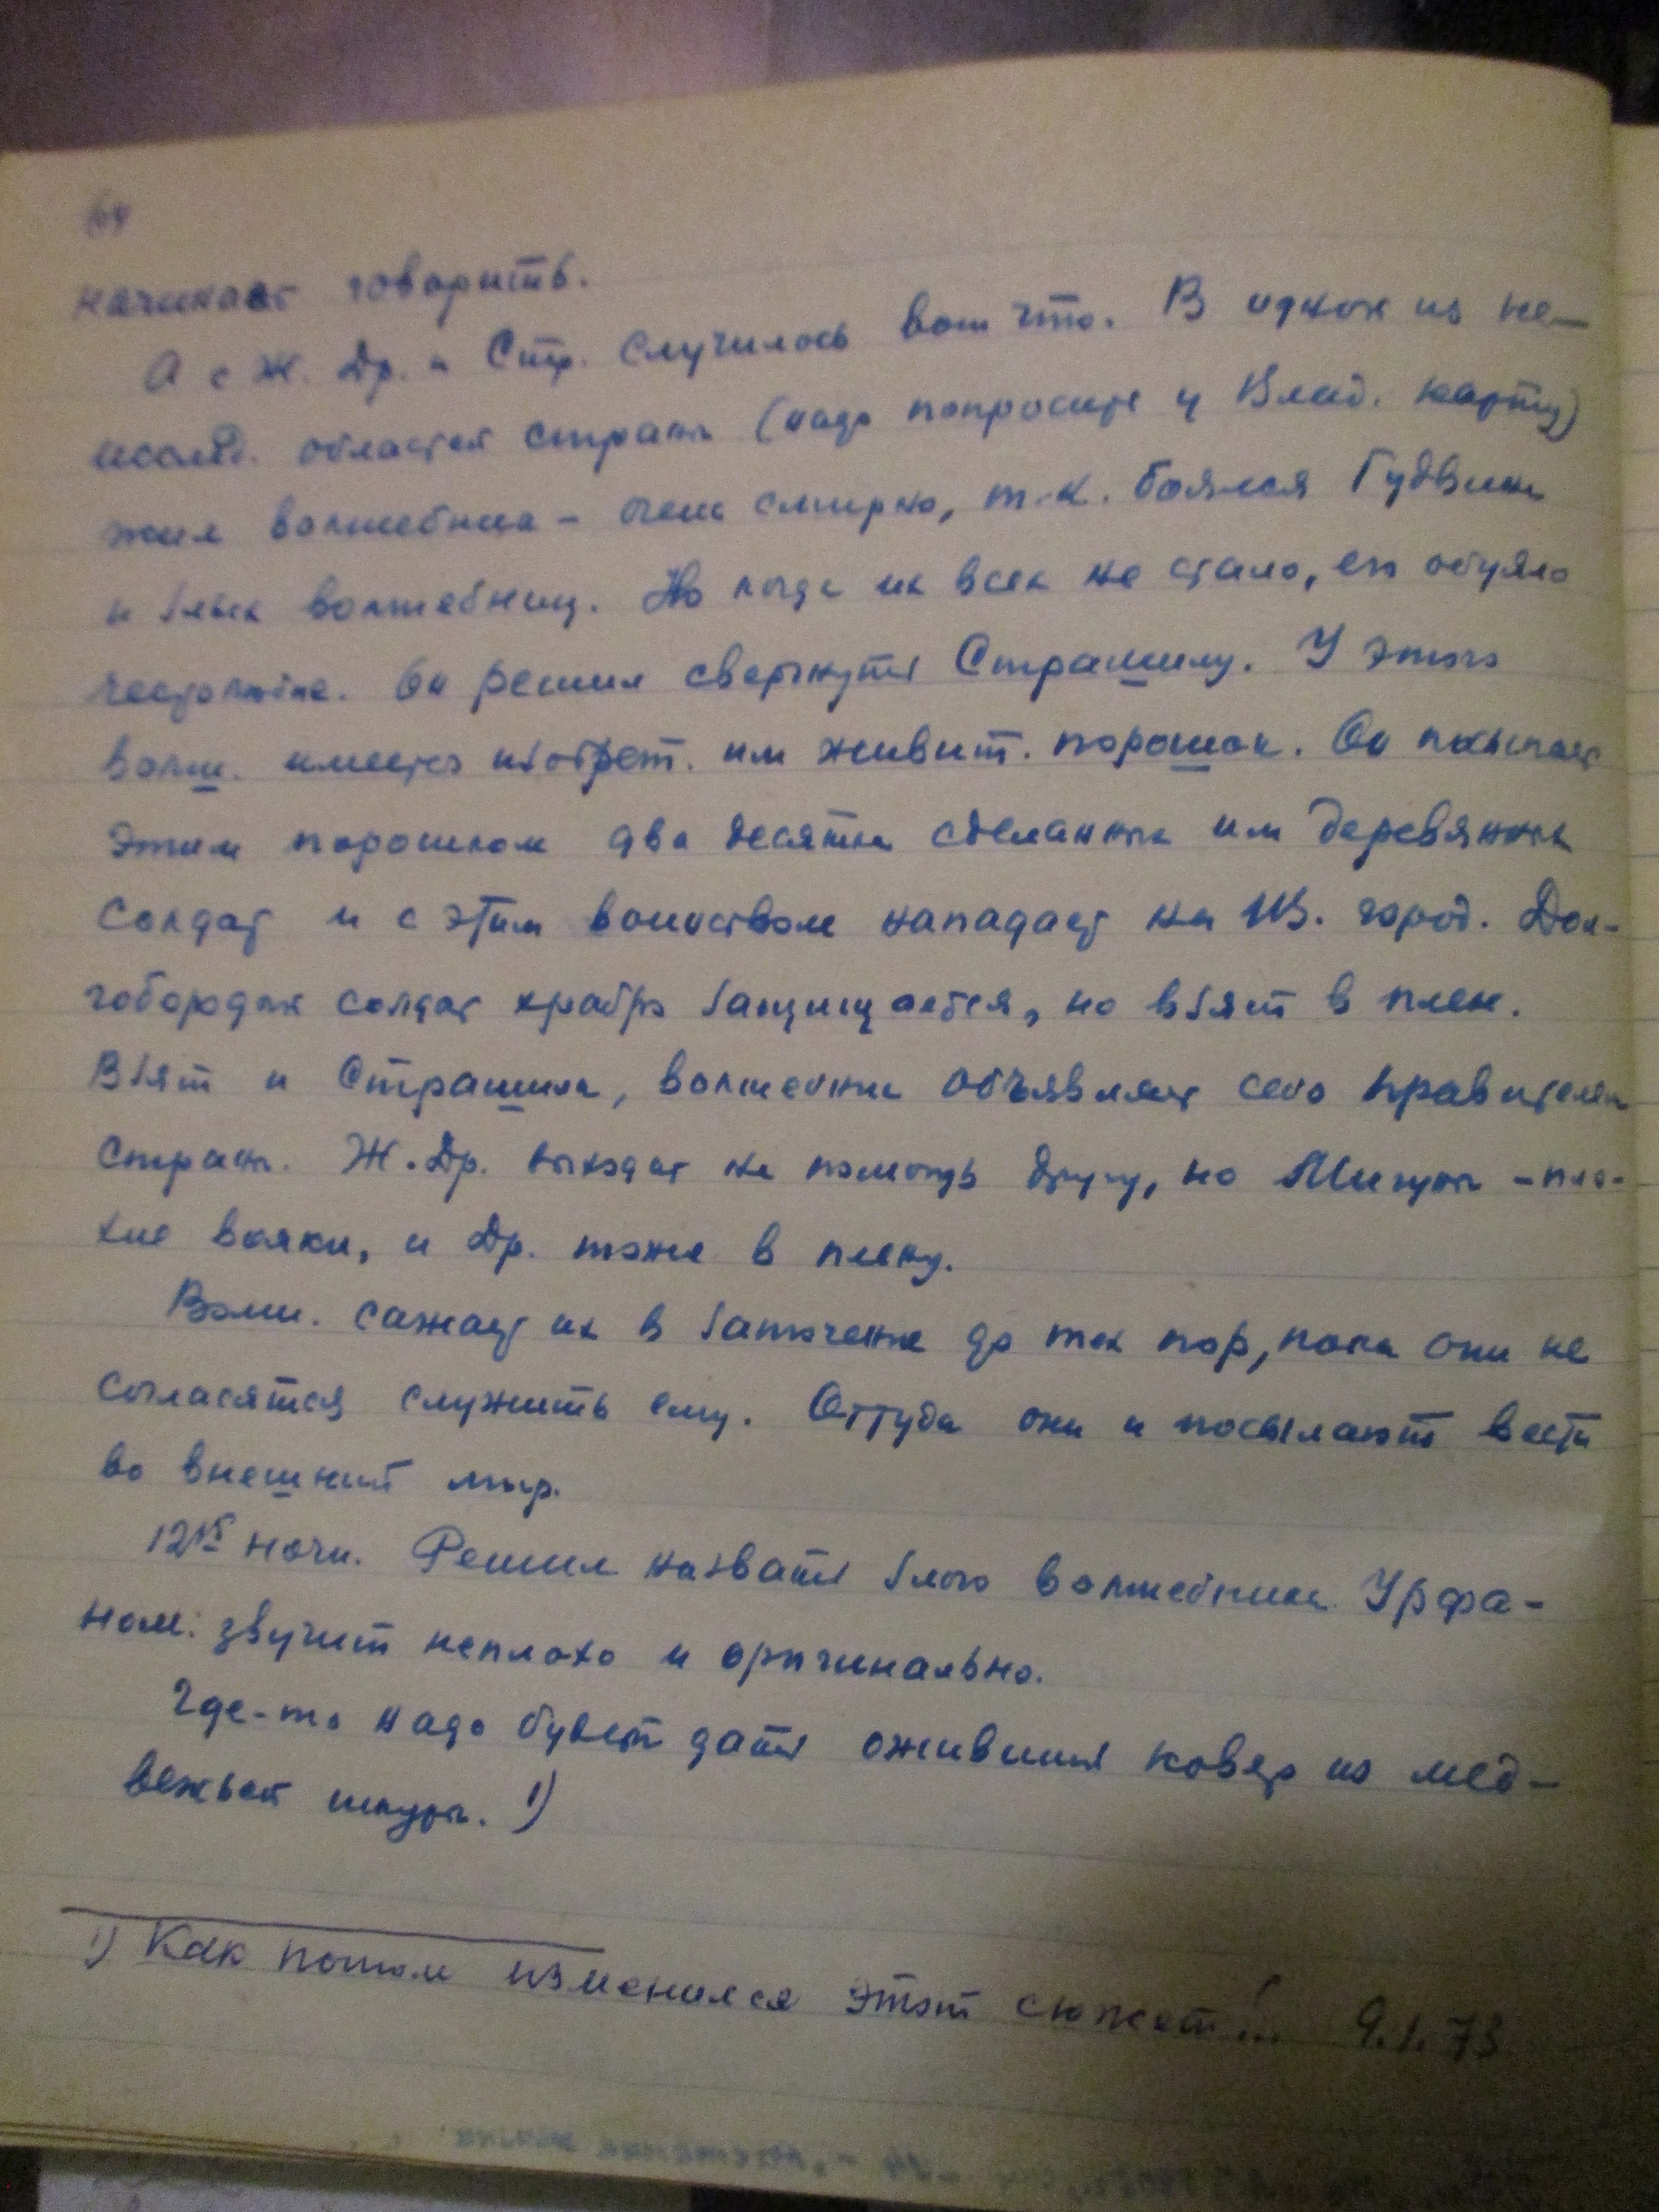 64
начинает говорить.
А с Ж. Др. и Стр. случилось вот что. В одной из не-
исслед. областей страны (надо попросить у Влад. карту)
жил волшебник – очень смирно, т.к. боялся Гудвина
и злых волшебниц. Но когда их всех не стало, его обуяло
честолюбие. Он решил свергнуть Страшилу. У этого
волш. имеется изобрет. им живит. порошок. Он посыпает
этим порошком два десятка сделанных им деревянных
солдат и с этим воинством нападает на Из. город. Дол-
гобородый солдат храбро защищается, но взят в плен.
Взят и Страшила, волшебник объявляет себя правителем
страны. Ж. Др. выходит на помощь другу, но Мигуны – пло-
хие вояки, и Др. тоже в плену.
Волш. сажает их в заточение до тех пор, пока они не
согласятся служить ему. Оттуда они и посылают вести
во внешний мир.
12 15 ночи. Решил назвать злого волшебника Урфа-
ном: звучит неплохо и оригинально.
Где-то надо будет дать оживший ковер из мед-
вежьей шкуры. 1)
1) Как потом изменился этот сюжет!.. 9.1.73